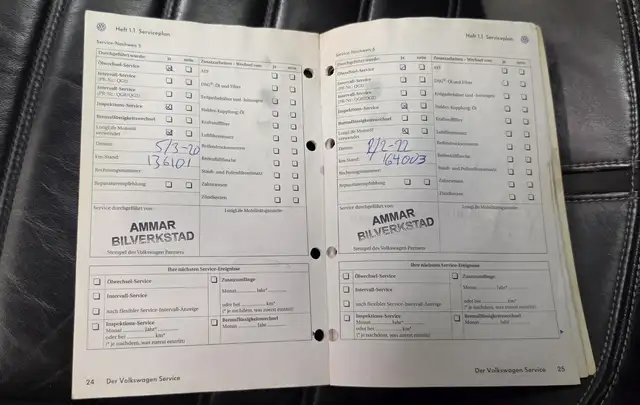 Heft 1.1 Serviceplan
Service-Nachweis 5
Durchgeführt wurde: ja nein
Ölwechsel-Service
Intervall-Service
(PR-Nr.: QG1)
Intervall-Service
Inspektions-Service
Bremsflüssigkeitswechsel
LongLife Motoröl
verwendet
Datum: 5/3-20
km-Stand: 136101
Rechnungsnummer:
Reparaturempfehlung
Zusatzarbeiten - Wechsel von: ja nein
ATF
DSG® Öl und Filter
Haldex Kupplung Öl
Kraftstofffilter
Luftfiltereinsatz
Reifendruckmessen
Reifenfüllflasche
Staub- und Pollenfiltereinsatz
Zahnriemen
Zündkerzen
Service durchgeführt von:
AMMAR
BILVERKSTAD
Stempel des Volkswagen Partners
LongLife Mobilitätsgarantie
Ihre nächsten Service-Ereignisse
Ölwechsel-Service
Intervall-Service
nach flexibler Service-Intervall-Anzeige
Inspektions-Service
Monat Jahr*
oder bei km*
(* je nachdem, was zuerst eintritt)
Zusatzumfänge
Monat Jahr*
oder bei km*
(* je nachdem, was zuerst eintritt)
Bremsflüssigkeitswechsel
Monat Jahr
24 Der Volkswagen Service
Heft 1.1 Serviceplan
Durchgeführt wurde: ja nein
Ölwechsel-Service
Intervall-Service
(PR-Nr.: QG1)
Intervall-Service
Inspektions-Service
Bremsflüssigkeitswechsel
LongLife Motoröl
verwendet
Datum: 2/2-22
km-Stand: 164003
Rechnungsnummer:
Reparaturempfehlung
Zusatzarbeiten - Wechsel von: ja nein
ATF
DSG® Öl und Filter
Haldex Kupplung Öl
Kraftstofffilter
Luftfiltereinsatz
Reifendruckmessen
Reifenfüllflasche
Staub- und Pollenfiltereinsatz
Zahnriemen
Zündkerzen
Service durchgeführt von:
AMMAR
BILVERKSTAD
Stempel des Volkswagen Partners
LongLife Mobilitätsgarantie
Ihre nächsten Service-Ereignisse
Ölwechsel-Service
Intervall-Service
nach flexibler Service-Intervall-Anzeige
Inspektions-Service
Monat Jahr*
oder bei km*
(* je nachdem, was zuerst eintritt)
Zusatzumfänge
Monat Jahr*
oder bei km*
(* je nachdem, was zuerst eintritt)
Bremsflüssigkeitswechsel
Monat Jahr
Der Volkswagen Service 25